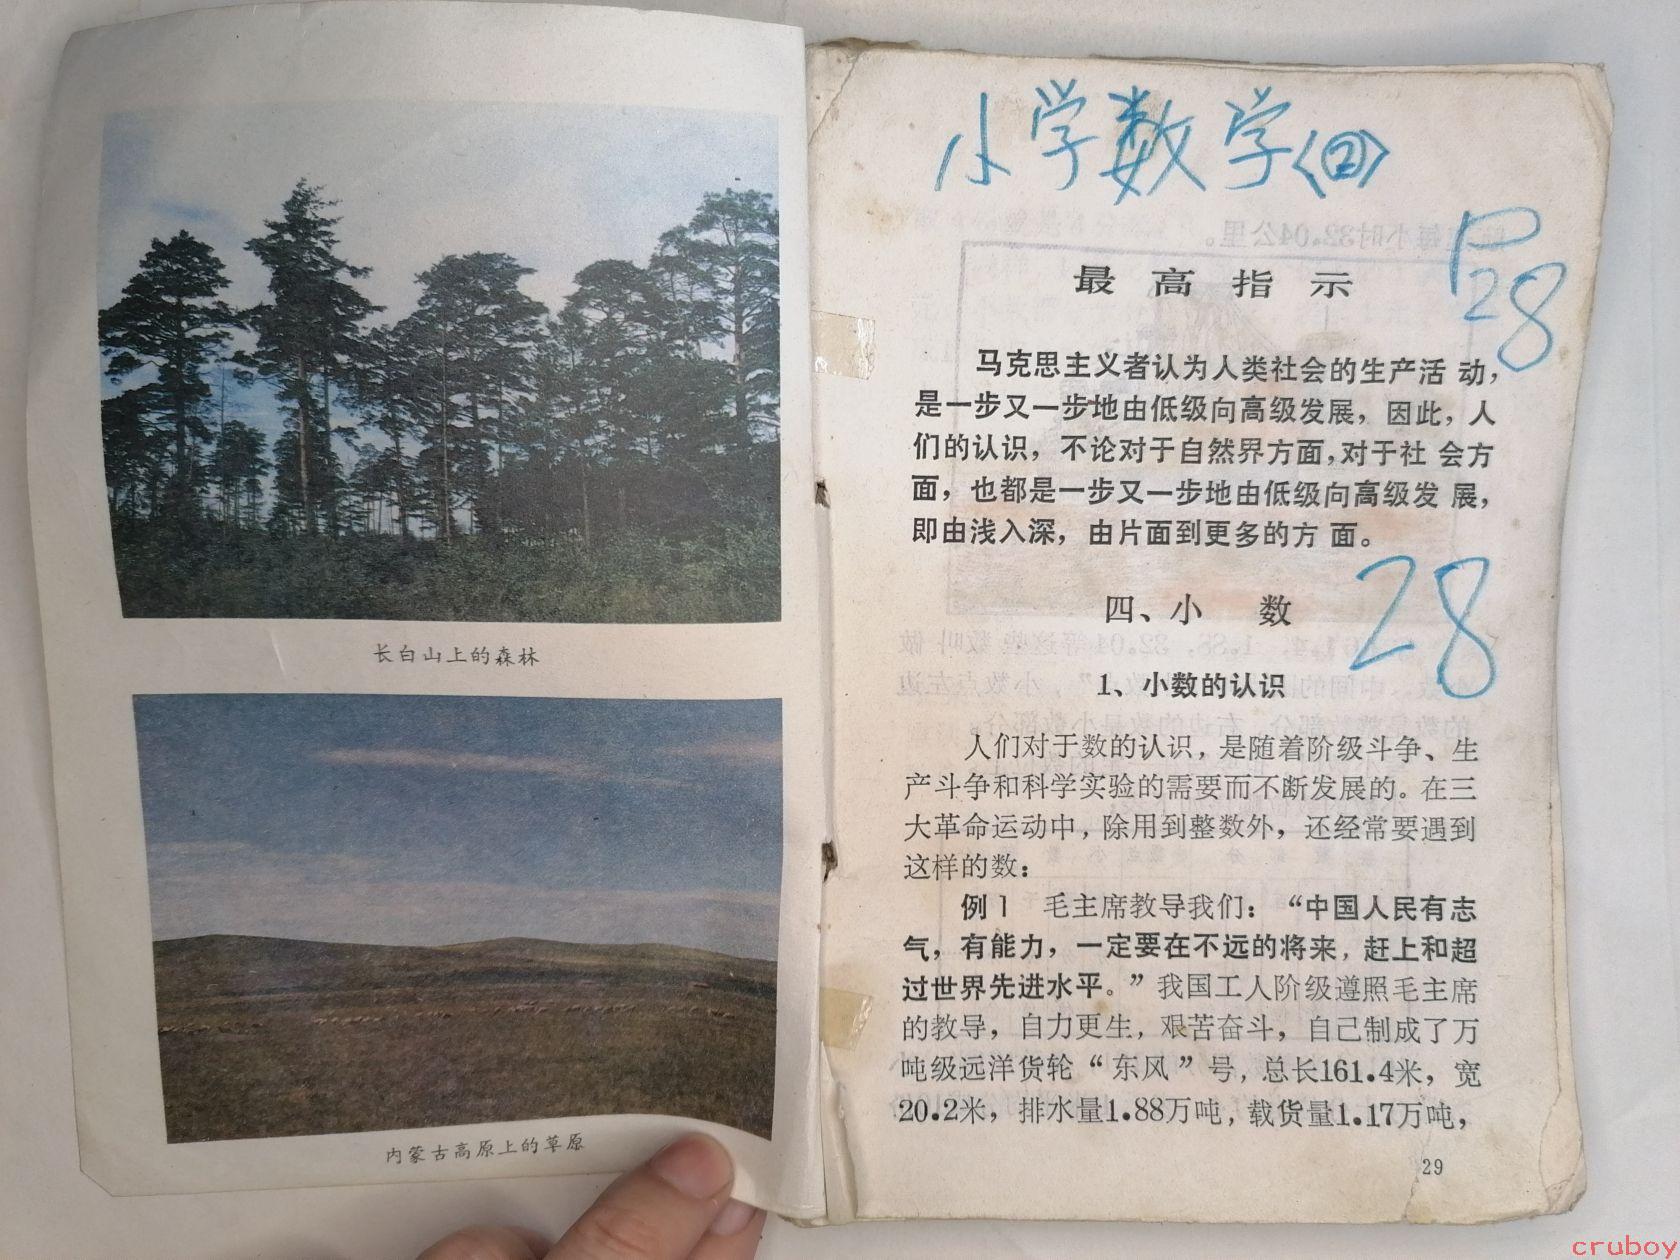 长白山上的森林
内蒙古高原上的草原
小学数学〈②〉
P28
最高指示
马克思主义者认为人类社会的生产活动，
是一步又一步地由低级向高级发展，因此，人
们的认识，不论对于自然界方面，对于社会方
面，也都是一步又一步地由低级向高级发展，
即由浅入深，由片面到更多的方面。
28
四、小数
1、小数的认识
人们对于数的认识，是随着阶级斗争、生
产斗争和科学实验的需要而不断发展的。在三
大革命运动中，除用到整数外，还经常要遇到
这样的数：
例1 毛主席教导我们：“中国人民有志
气，有能力，一定要在不远的将来，赶上和超
过世界先进水平。”我国工人阶级遵照毛主席
的教导，自力更生，艰苦奋斗，自己制成了万
吨级远洋货轮“东风”号，总长161.4米，宽
20.2米，排水量1.88万吨，载货量1.17万吨，
29
cruboy